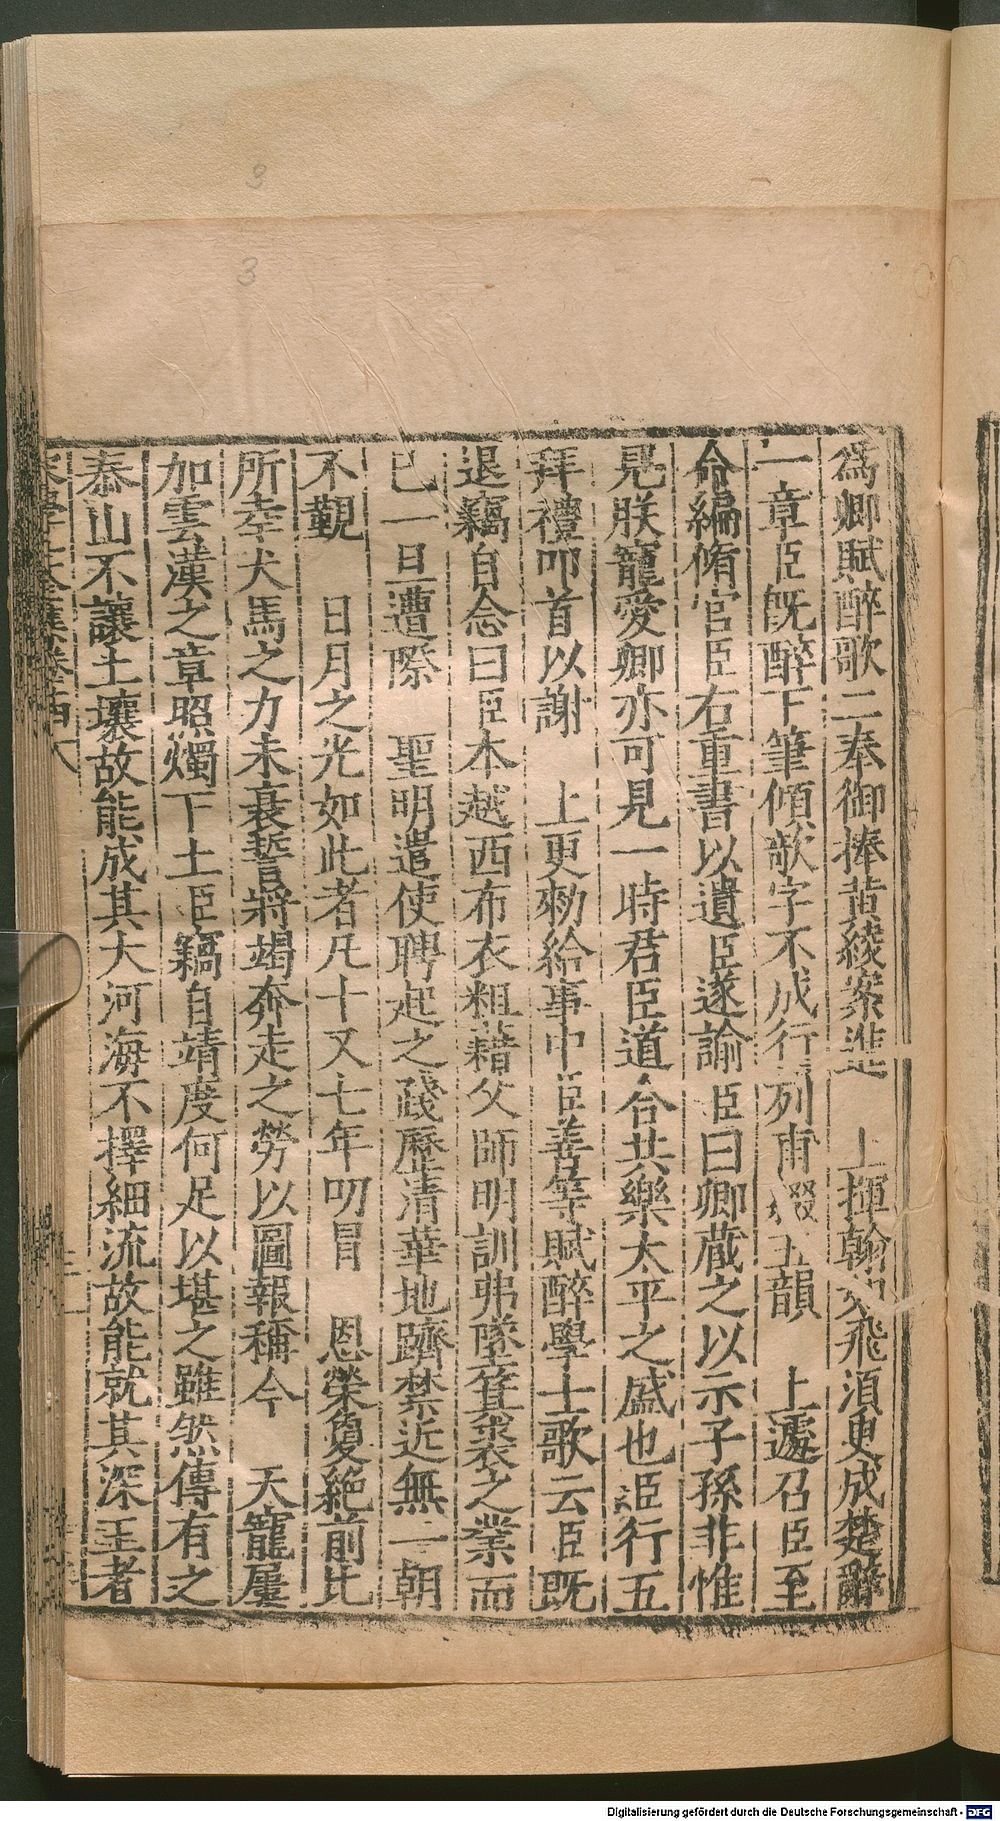 爲卿賦醉歌二奉御捧黄綾案進　上揮翰如飛須臾成楚辭
一章臣旣醉下筆傾欹字不成行列甫綴五韻　上遽召臣至
命編脩官臣右重書以遺臣遂諭臣曰卿藏之以示子孫非惟
見朕寵愛卿亦可見一時君臣道合共樂太平之盛也臣行五
拜禮叩首以謝　上更勑給事中臣善等賦醉學士歌云臣既
退竊自念曰臣本越西布衣粗藉父師明訓弗墜箕裘之業而
已一旦遭際　聖明遣使聘起之踐歷清華地躋禁近無一朝
不觀　日月之光如此者凡十又七年叨冒　恩榮夐絕前比
所幸犬馬之力未衰誓將竭奔走之勞以圖報稱今　天寵屢
加雲漢之章照燭下土臣竊自靖度何足以堪之雖然傳有之
泰山不讓土壤故能成其大河海不擇細流故能就其深王者
3
3
Digitalisierung gefördert durch die Deutsche Forschungsgemeinschaft - DFG